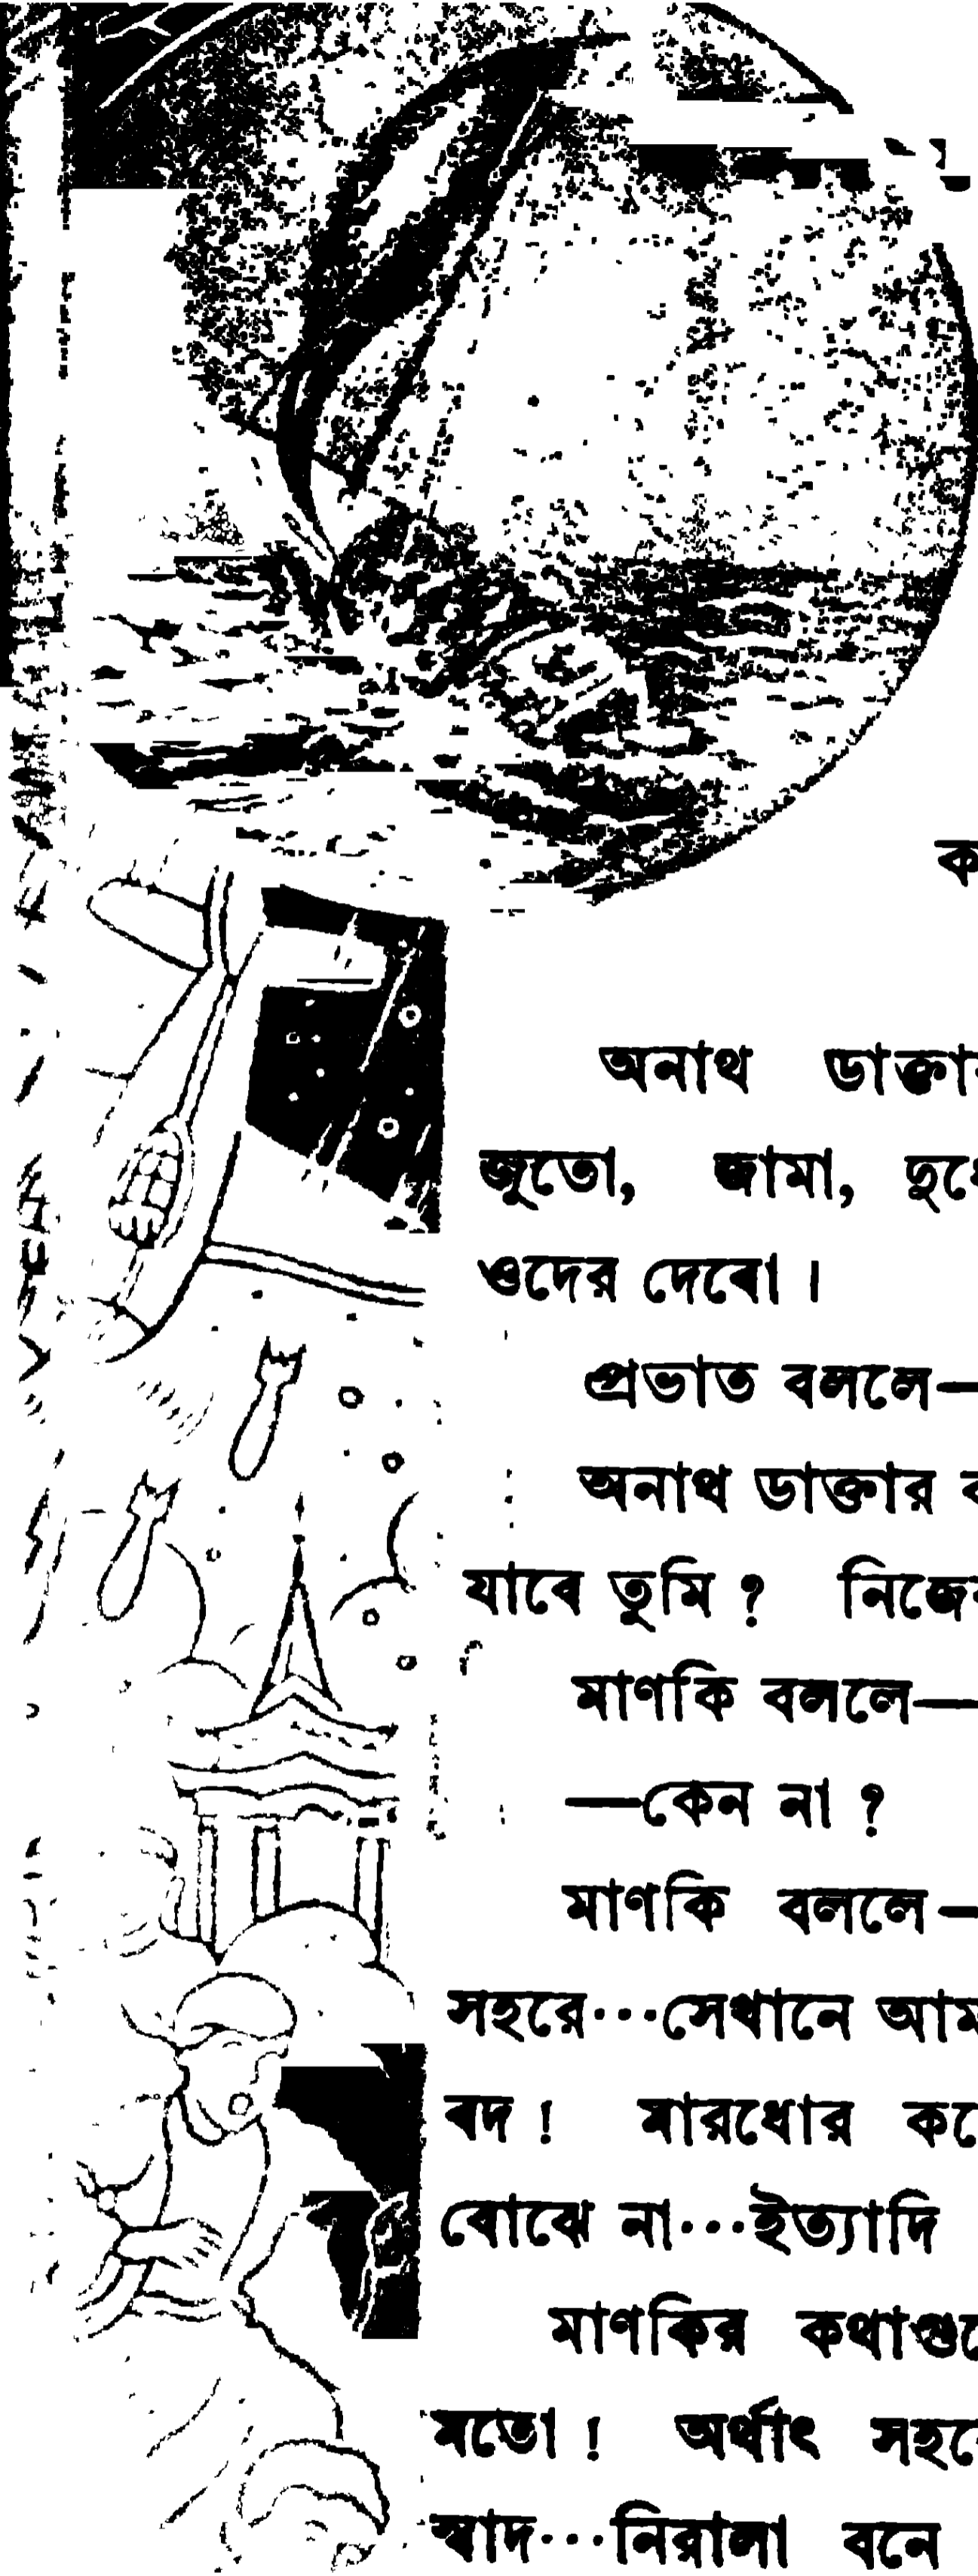 অনাথ
জুতো, জামা,
ওদের দেবো।
প্রভাত বললে—
অনাথ ডাক্তার
যাবে তুমি ?
মাণকি বললে—
—কেন না ?
মাণকি বললে—
সহরে···সেখানে
বদ ! মারধোর
বোঝে না···ইত্যাদি
মাণকির
মতো ! অর্থাৎ
স্বাদ···নিরালা বনে